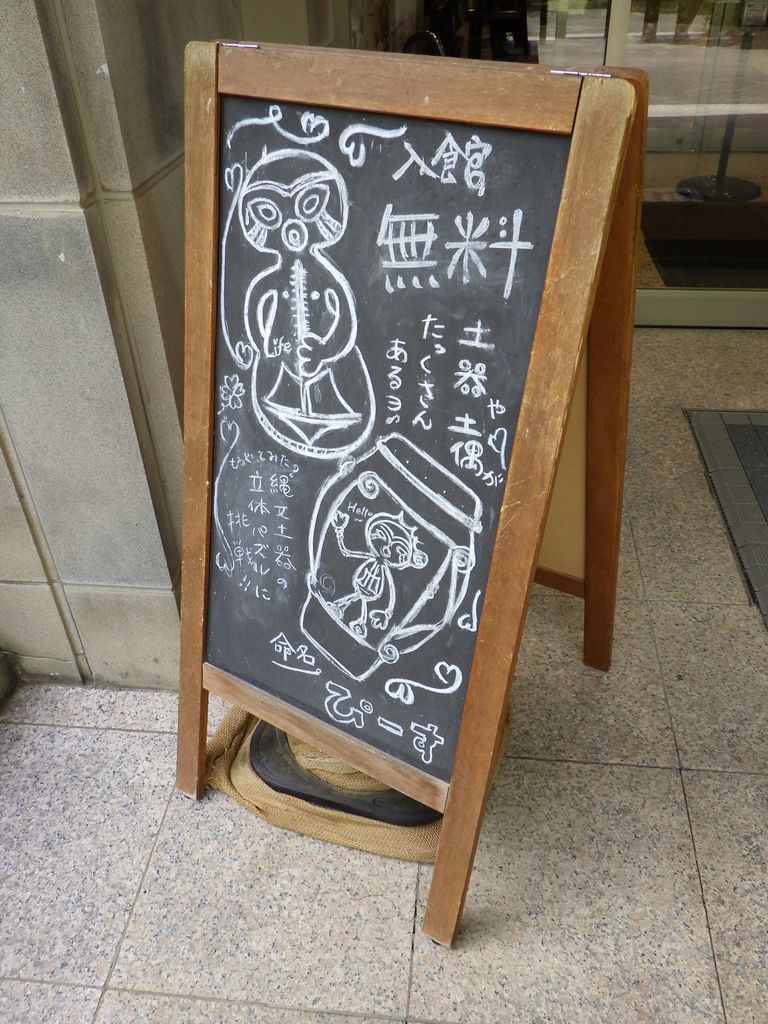 入館
無料
土器や土偶が
たっくさん
あるヨ。
life
Hello~
縄文土器の
立体パズルに
挑戦!!
命名
ぴーす